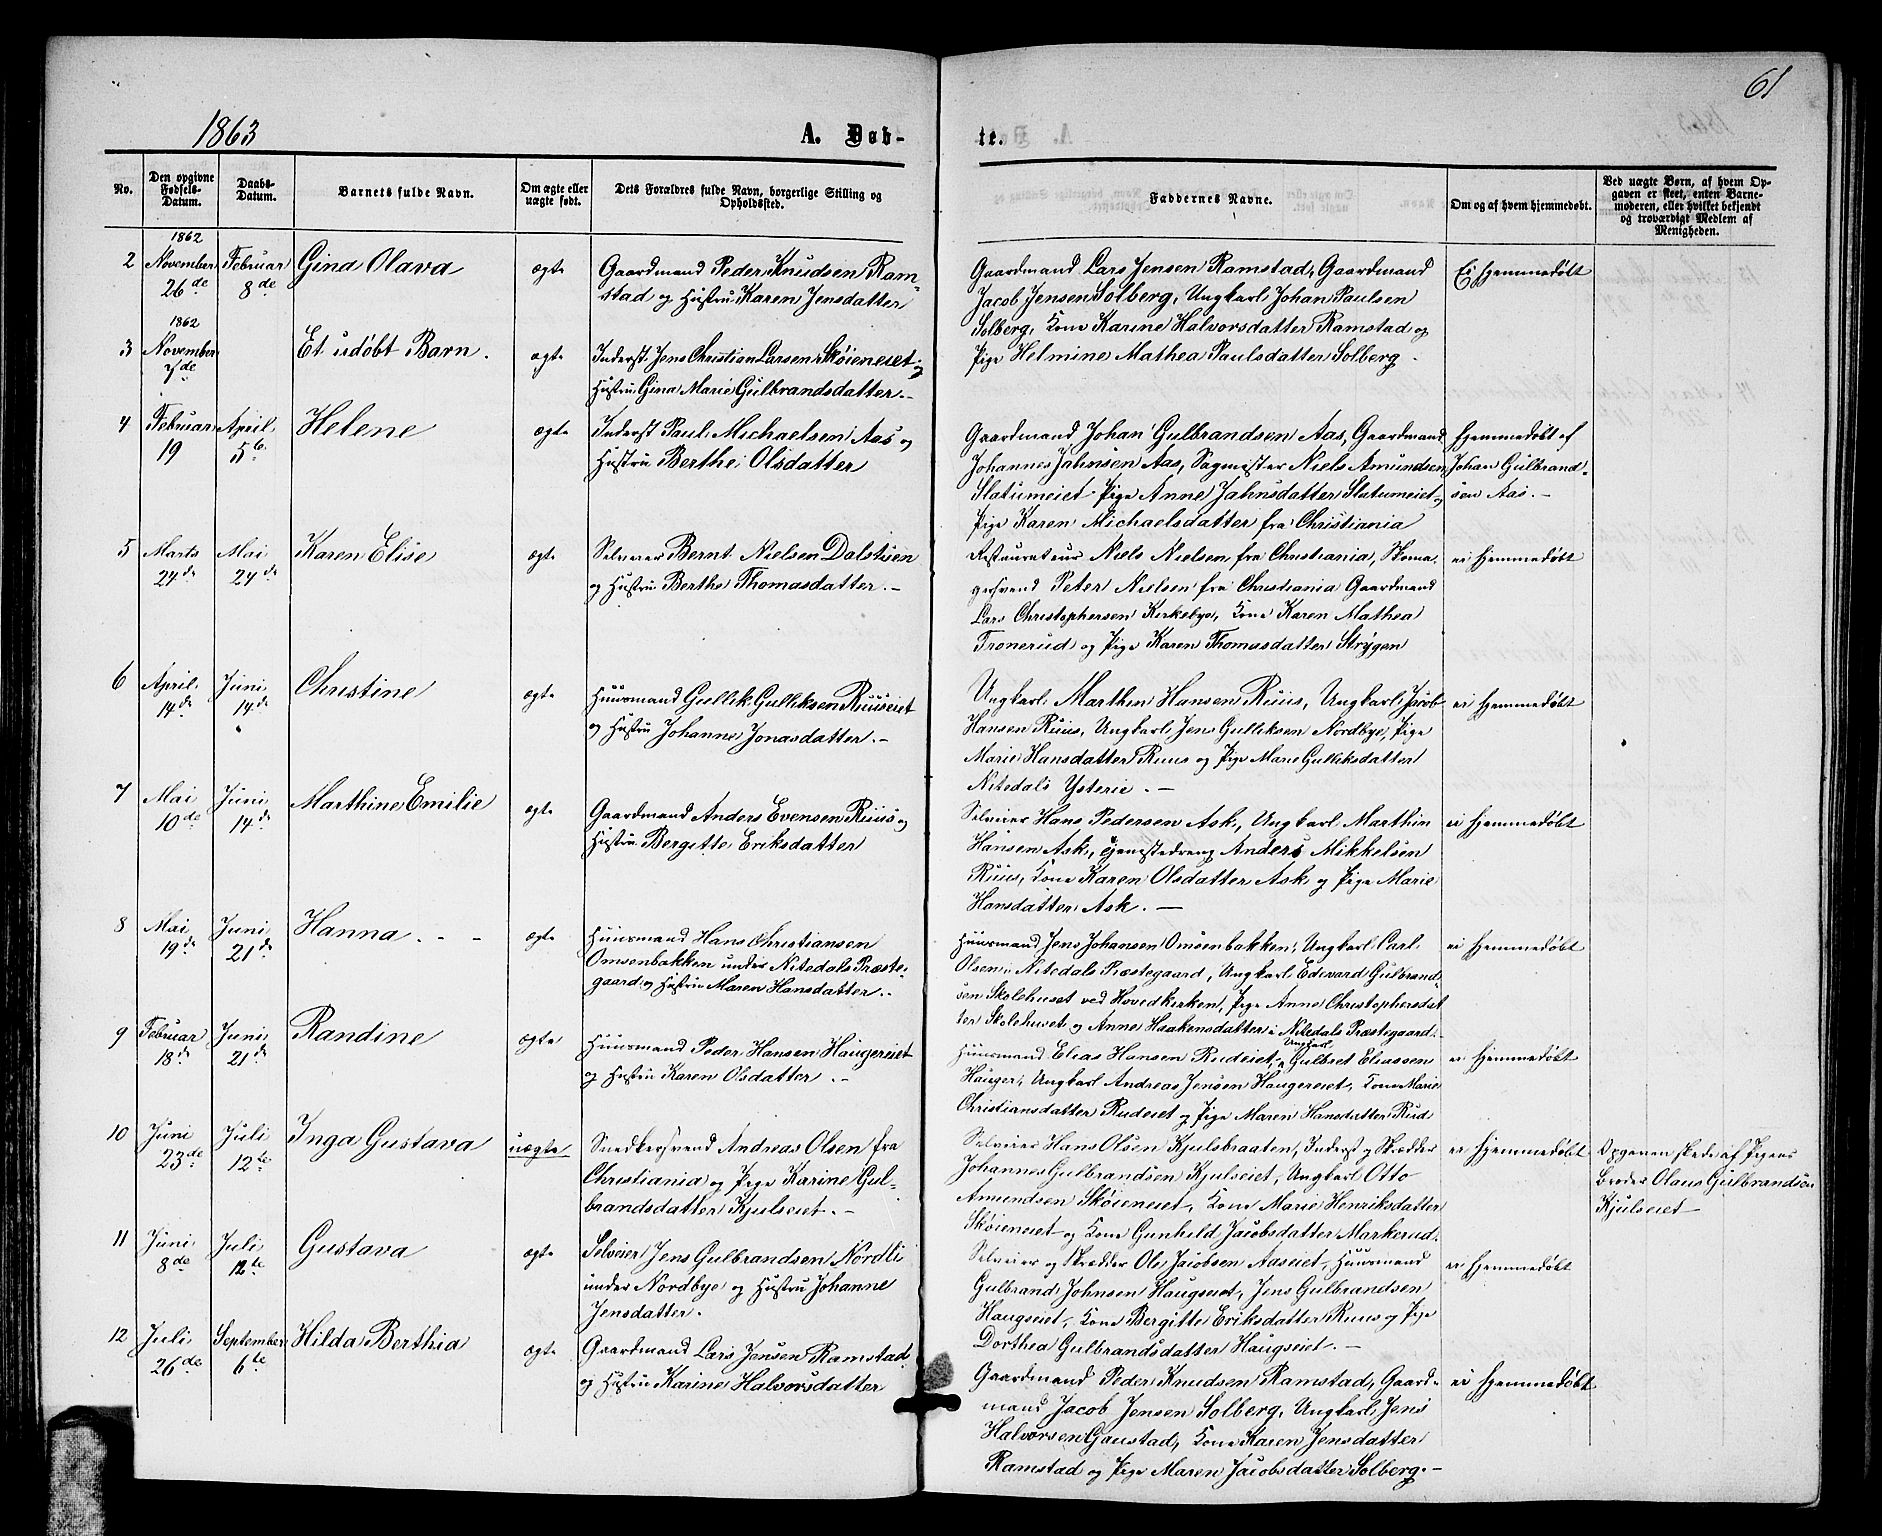 61
1863
A. Døb-
te.
No.
Den opgivne Fødsels-Datum.
Daabs-Datum.
Barnets fulde Navn.
Om ægte eller uægte født.
Dets Forældres fulde Navn, borgerlige Stilling og Opholdssted.
Faddernes Navne.
Om og af hvem hjemmedøbt.
Ved uægte Børn, af hvem Opgaven er skeet, enten Barnemoderen, eller hvilket bekjendt og troværdigt Medlem af Menigheden.
2
1862
November 26de
Februar 8de
Gina Olava
ægte
Gaardmand Peder Knudsen Ram-
stad og Hustru Karen Jensdatter
Gaardmand Lars Jensen Ramstad, Gaardmand
Jacob Jensen Solberg, Ungkarl Johan Paulsen
Solberg, Kone Karine Halvorsdatter Ramstad og
Pige Helmine Mathea Paulsdatter Solberg.
Ei hjemmedøbt
3
1862
November 7de
Et udøbt Barn.
ægte
Inderst Jens Christian Larsen Skøieneiet og
Hustru Gina Marie Gulbrandsdatter.-
4
Februar 19
April 5te
Helene
ægte
Inderst Paul Michaelsen Aas og
Hustru Berthe Olsdatter
Gaardmand Johan Gulbrandsen Aas, Gaardmand
Johannes Jahnsen Aas, Sagmester Niels Amundsen
Slatumeiet Pige Anne Jahnsdatter Slatumeiet og
Pige Karen Michaelsdatter fra Christiania
hjemmedøbt af
Johan Gulbrand-
sen Aas.-
5
Marts 24de
Mai 24de
Karen Elise
ægte
Selveier Bernt Nielsen Dalstuen
og Hustru Berthe Thomasdatter.-
Restaurateur Niels Nielsen fra Christiania, Skoma-
gersvend Peter Nielsen fra Christiania Gaardmand
Lars Christophersen Kirkebye, Kone Karen Mathea
Tronerud og Pige Karen Thomasdatter Strygen
ei hjemmedøbt
6
April 14de
Juni 14de
Christine
ægte
Huusmand Gullik Gulliksen Ruuseiet
og Hustru Johanne Jonasdatter.-
Ungkarl Marthin Hansen Ruus, Ungkarl Jacob
Hansen Ruus, Ungkarl Jens Gulliksen Nordbye, Pige
Marie Hansdatter Ruus og Pige Marie Gulliksdatter
Nitedals Ysterie.-
ei hjemmedøbt
7
Mai 10de
Juni 14de
Marthine Emilie
ægte
Gaardmand Anders Evensen Ruus og
Hustru Bergitte Eriksdatter
Selveier Hans Pedersen Ask, Ungkarl Marthin
Hansen Ask, Tjenestedreng Anders Mikkelsen
Ruus, Kone Karen Olsdatter Ask og Pige Marie
Hansdatter Ask.-
ei hjemmedøbt
8
Mai 19de
Juni 21de
Hanna.- -
ægte
Huusmand Hans Christiansen
Omsenbakken under Nitedals Præste-
gaard og Hustru Maren Hansdatter.-
Huusmand Jens Johansen Omsenbakken, Ungkarl Carl
Olsen Nitedals Præstegaard, Ungkarl Edevard Gulbrand-
sen Skolehuset ved Hovedkirken, Pige Anne Christophersdat
ter Skolehuset og Anne Haakensdatter i Nitedals Præstegaard.-
ei hjemmedøbt
9
Februar 18de
Juni 21de
Randine
ægte
Huusmand Peder Hansen Haugereiet
og Hustru Karen Olsdatter.-
Huusmand Elias Hansen Rudeiet, Ungkarl Gulbret Eliassen
Hauger, Ungkarl Andreas Jensen Haugereiet, Kone Marie
Christiansdatter Rudeiet og Pige Maren Hansdatter Rud
ei hjemmedøbt
10
Juni 23de
Juli 12te
Inga Gustava
uægte
Snedkersvend Andreas Olsen fra
Christiania og Pige Karine Gul-
brandsdatter Kjulseiet.-
Selveier Hans Olsen Kjulsbraaten, Inderst og Skrædder
Johannes Gulbrandsen Kjulseiet, Ungkarl Otto
Amundsen Skøieneiet, Kone Marie Henriksdatter
Skøieneiet og Kone Gunhild Jacobsdatter Markerud.
ei hjemmedøbt
Opgaven skede af Pigens
Broder Olaus Gulbrandsen
Kjulseiet
11
Juni 8de
Juli 12te
Gustava
ægte
Selveier Jens Gulbrandsen Nordli
under Nordbye og Hustru Johanne
Jensdatter.
Selveier og Skrædder Ole Jacobsen Aaseiet, Huusmand
Gulbrand Johnsen Haugseiet, Jens Gulbrandsen
Haugseiet, Kone Bergitte Eriksdatter Ruus og Pige
Dorthea Gulbrandsdatter Haugseiet.-
ei hjemmedøbt
12
Juli 26de
September 6te
Hilda Berthia
ægte
Gaardmand Lars Jensen Ramstad
og Hustru Karine Halvorsdatter
Gaardmand Peder Knudsen Ramstad, Gaard-
mand Jacob Jensen Solberg, Ungkarl Jens
Halvorsen Gaustad, Kone Karen Jensdatter
Ramstad og Pige Maren Jacobsdatter Solberg.-
ei hjemmedøbt